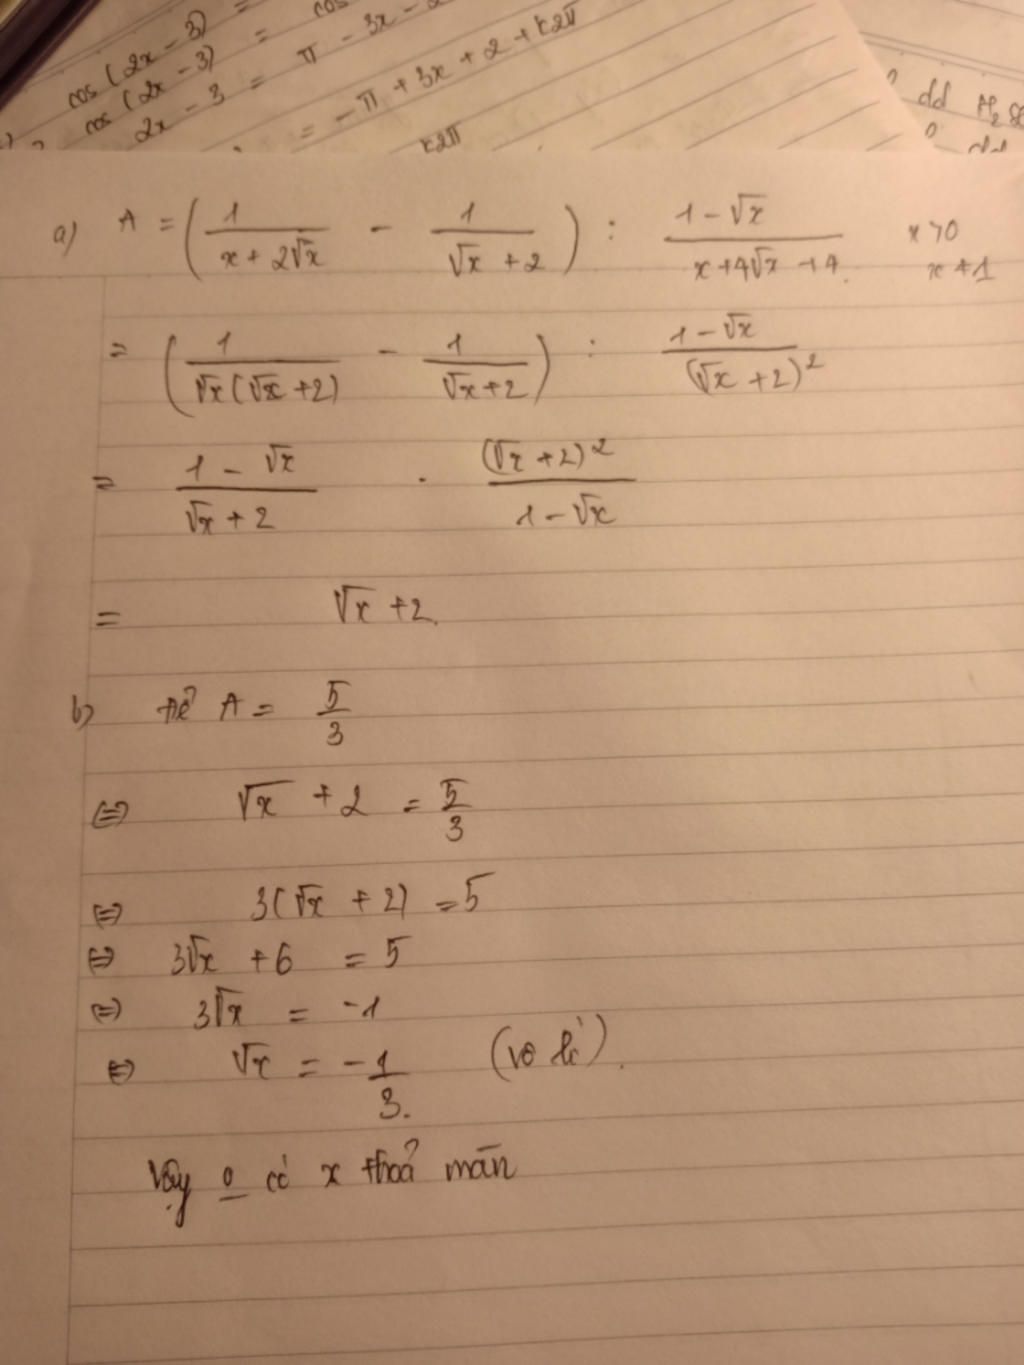 cos(2x - 3) =
cos(2x - 3) = cos
2x - 3 = π - 3x - 2
= -π + 3x + 2 + k2π
k2π
dd H₂S
a) A = (1/(x + 2√x) - 1/(√x + 2)) : (1 - √x)/(x + 4√x + 4) x > 0
x ≠ 1
= (1/(√x(√x + 2)) - 1/(√x + 2)) : (1 - √x)/(√x + 2)²
= (1 - √x)/(√x + 2) . (√x + 2)²/(1 - √x)
= √x + 2.
b) Để A = 5/3
⇔ √x + 2 = 5/3
⇔ 3(√x + 2) = 5
⇔ 3√x + 6 = 5
⇔ 3√x = -1
⇔ √x = -1/3. (vô lí).
Vậy o có x thoả mãn